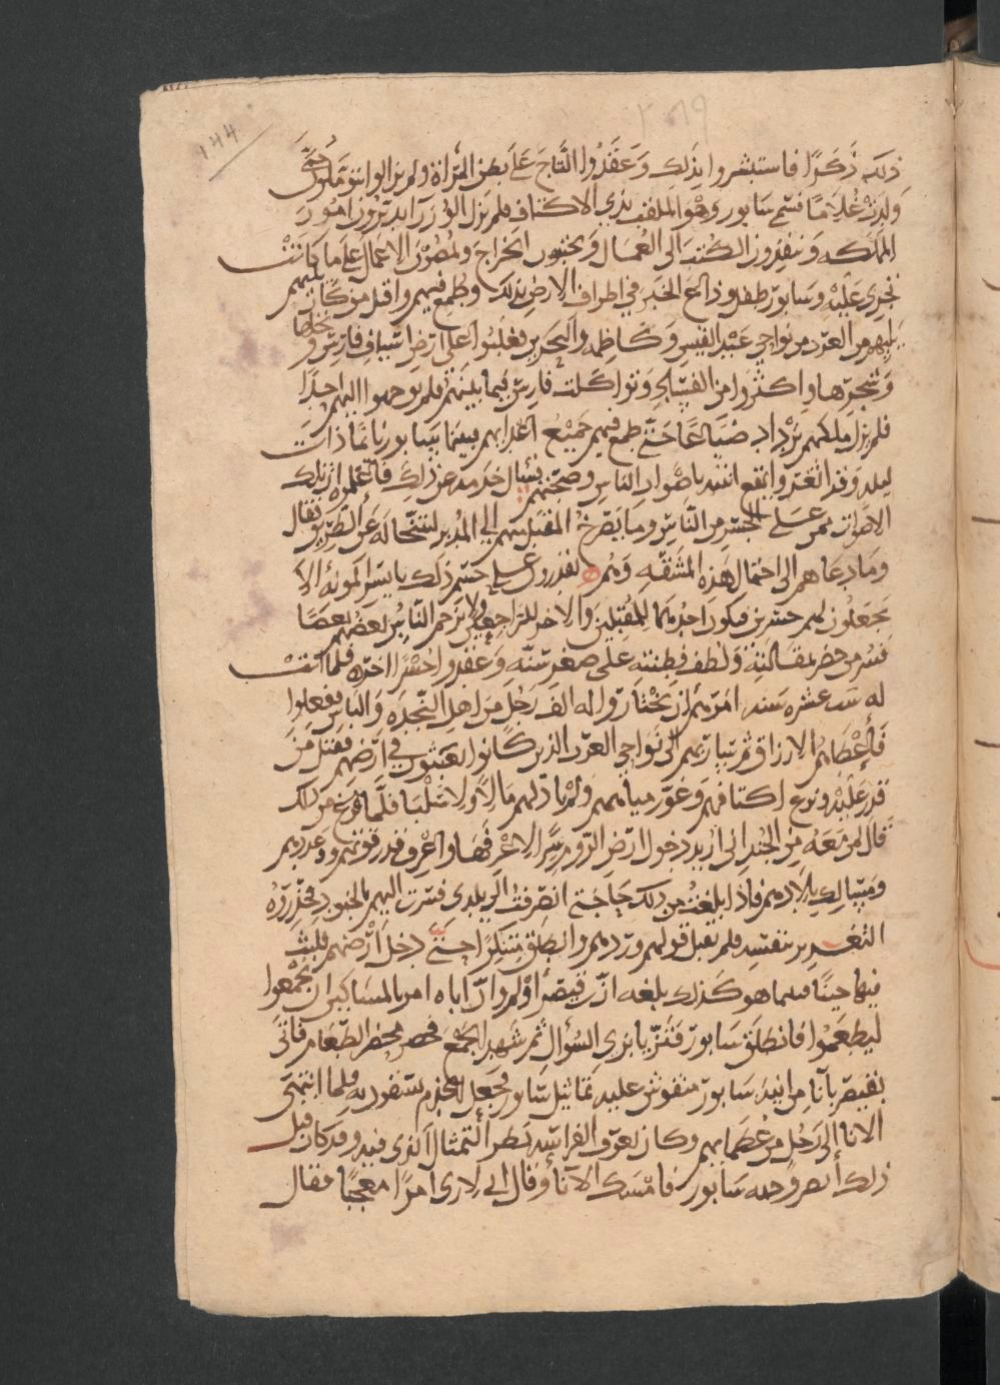 ١٤٤
ذلك ذكرًا فاستبشروا بذلك وعقدوا التاج على بطن المرأة ولم يزالوا يتوقعون حتى
ولدت غلامًا فسمي سابور وهو الملقب بذي الاكتاف فلم تزل الوزرا يدبرون امور
المملكه وينفذون الكتب الى العمال ويجبون الخراج ويمضون الاعمال على ما كانت
تجري عليه وسابور طفل وذاع الخبر في اطراف الارض بذلك وطمع فيهم واقبل من كان
يليهم من العرب من نواحي عبد القيس وكاظمه والبحرين فغلبوا على ارض اسياف فارس ونخلها
وشجرها واكثروا من الفساد وتواكلت فارس فيما بينهم فلم يوجهوا اليهم احدا
فلم يزل ملكهم يزداد ضياعا حتى طمع فيهم جميع اعدايهم فبينما سابور نايمًا ذات
ليله وقد اثغر وايفع انتبه باصوات الناس وضجتهم فسال خدمه عن ذلك فاعلموه ان تلك
الاصوات ممن على الجسر من الناس وما يصرخ المقبل منهم الى المدبر لتنحا له عن الطريق فقال
وما دعاهم الى احتمال هذه المشقه وهم يقدرون على حسم ذلك بايسر المونه الا
يجعلون لهم جسرين فيكون احدهما للمقبلين والاخر للراجعين ولا يزحم الناس بعضهم بعضًا
فسر من حضر مقالته ولطف فطنته على صغر سنه وعقدوا جسرا اخر فلما اتت
له ست عشره سنه امرهم ان يختاروا له الف رجل من اهل النجده والباس ففعلوا
فاعطاهم الارزاق ثم سار بهم الى نواحي العرب الذين كانوا يعيثون في ارضهم فقتل من
قدر عليه ونزع اكتافهم وغور مياههم ولم ياخذ لهم مالا ولا سلبا فلما فرغ من ذلك
قال لمن معه من الجند اني اريد دخول ارض الروم سرًا لاعرفها واعرف قدر قوتهم وعددهم
ومسالك بلادهم فاذا بلغت من ذلك حاجته انصرفت الى بلدي فسرت اليهم بالجنود فحذروه
التغرير بنفسه فلم يقبل قولهم وردهم وانطلق متنكرا حتى دخل ارضهم فلبث
فيها حينًا فبينما هو كذلك بلغه ان قيصر اولم وان اباه امر بالمساكين ان يجمعوا
ليطعموا فانطلق سابور فتزيا بزي السؤال ثم شهد الجمع فحضر محضر الطعام فاتى
لقيصر بانا من انية سابور منقوش عليه تماثيل سابور فجعل الخدم يسقون به فلما انتهى
الانا الى رجل من عظمايهم وكان يعرف الفراسه نظر التمثال الذي فيه وقد كان قبل
ذلك ابصر وجه سابور فامسك الانا وقال اني لارى امرا معجبًا فقال